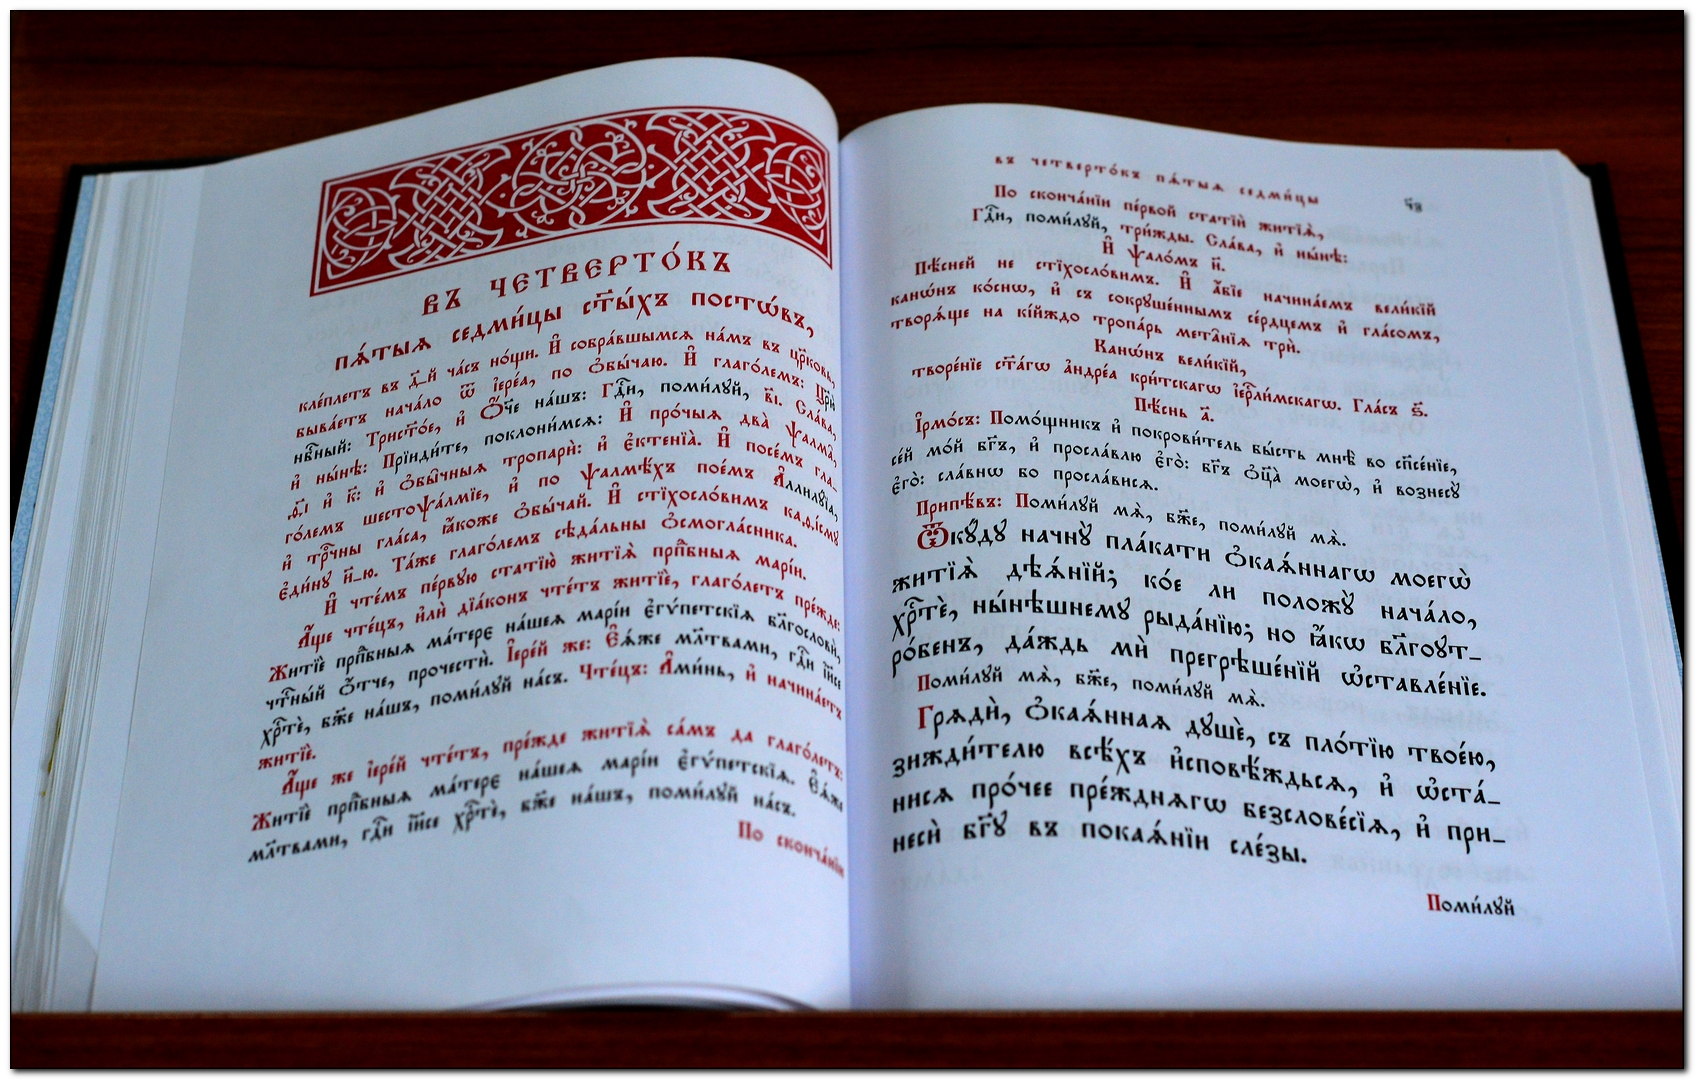 въ четверто́къ
пѧ́тыѧ седми́цы ст҃ы́хъ постѡ́въ,
клéплетъ въ д҃_й ча́съ но́щи. И҆ собра́вшымсѧ на́мъ въ цр҃ковь,
быва́етъ нача́ло ѿ і҆ере́а, по ѻ҆бы́чаю. И҆ глаго́лемъ: Цр҃ѝ
нбⷭ҇ный: Трист҃о́е, и҆ Ѻ҆́ч҃е на́шъ: Гдⷭ҇и, поми́лꙋй, в҃і. Сла́ва,
и҆ ны́нѣ: Прїиди́те, поклони́мсѧ: И҆ про́чыѧ два̀ ѱалма̑,
ѳ҃і и҆ к҃: и҆ ѻ҆бы̑чныѧ тропарѝ: и҆ є҆ктенїа̀. И҆ посе́мъ гла-
го́лемъ шестоѱа́лмїе, и҆ по ѱалмѣ́хъ пое́мъ А҆ллилꙋ́їа,
и҆ трⷪ҇чны гла́са, ꙗ҆́коже ѻ҆бы́чай. И҆ стїхосло́вимъ каѳі́смꙋ
є҆ди́нꙋ и҃_ю. Та́же глаго́лемъ сѣда́льны ѻ҆смогла́сника.
И҆ чте́мъ пе́рвꙋю статїю̀ житїѧ̀ прпⷣбныѧ марі́и.
А҆́ще чте́цъ, и҆лѝ дїа́конъ чте́тъ житїѐ, глаго́летъ пре́жде:
Житїѐ прпⷣбныѧ ма́тере на́шеѧ марі́и є҆гѵ́петскїѧ бл҃гословѝ,
чтⷭ҇ны́й ѻ҆́тче, прочестѝ. І҆ере́й же: Е҆ѧ́же мл҃твами, гдⷭ҇и і҆и҃се
хрⷭ҇тѐ, бж҃е на́шъ, поми́лꙋй на́съ. Чте́цъ: А҆ми́нь, и҆ начина́етъ
житїѐ.
А҆́ще же і҆ере́й чте́тъ, пре́жде житїѧ̀ са́мъ да глаго́летъ:
Житїѐ прпⷣбныѧ ма́тере на́шеѧ марі́и є҆гѵ́петскїѧ. Е҆ѧ́же
мл҃твами, гдⷭ҇и і҆и҃се хрⷭ҇тѐ, бж҃е на́шъ, поми́лꙋй на́съ.
По сконча́нїи
въ четверто́къ пѧ́тыѧ седми́цы
По сконча́нїи пе́рвой статїѝ житїѧ̀,
Гдⷭ҇и, поми́лꙋй, три́жды. Сла́ва, и҆ ны́нѣ:
И҆ ѱало́мъ н҃.
Пѣ́сней не стїхосло́вимъ. И҆ а҆́бїе начина́емъ вели́кїй
канѡ́нъ ко́снѡ, и҆ съ сокрꙋше́ннымъ се́рдцемъ и҆ гла́сомъ,
творѧ́ще на кі́йждо тропа́рь мета̑нїѧ трѝ.
Канѡ́нъ вели́кїй,
творе́нїе ст҃а́гѡ а҆ндре́а кри́тскагѡ і҆ерⷭ҇ли́мскагѡ. Гла́съ ѕ҃.
Пѣ́снь а҃.
І҆рмо́съ: Помо́щникъ и҆ покрови́тель бы́сть мнѣ̀ во сп҃се́нїе,
се́й мо́й бг҃ъ, и҆ просла́влю є҆го̀: бг҃ъ ѻ҆ц҃а̀ моегѡ̀, и҆ вознесꙋ̀
є҆го̀: сла́внѡ бо просла́висѧ.
Припѣ́въ: Поми́лꙋй мѧ̀, бж҃е, поми́лꙋй мѧ̀.
Ѿкꙋ́дꙋ начнꙋ̀ пла́кати ѻ҆каѧ́ннагѡ моегѡ̀
житїѧ̀ дѣѧ́нїй; ко́е ли положꙋ̀ нача́ло,
хрⷭ҇тѐ, ны́нѣшнемꙋ рыда́нїю; но ꙗ҆́кѡ бл҃гоꙋт_
ро́бенъ, да́ждь мѝ прегрѣше́нїй ѡ҆ставле́нїе.
Поми́лꙋй мѧ̀, бж҃е, поми́лꙋй мѧ̀.
Грѧдѝ, ѻ҆каѧ́ннаѧ дꙋшѐ, съ пло́тїю твое́ю,
зижди́телю всѣ́хъ и҆сповѣ́ждьсѧ, и҆ ѡ҆ста́_
нисѧ про́чее пре́ждиѧгѡ безслове́сїѧ, и҆ при_
несѝ бг҃ꙋ въ покаѧ́нїи сле́зы.
Поми́лꙋй